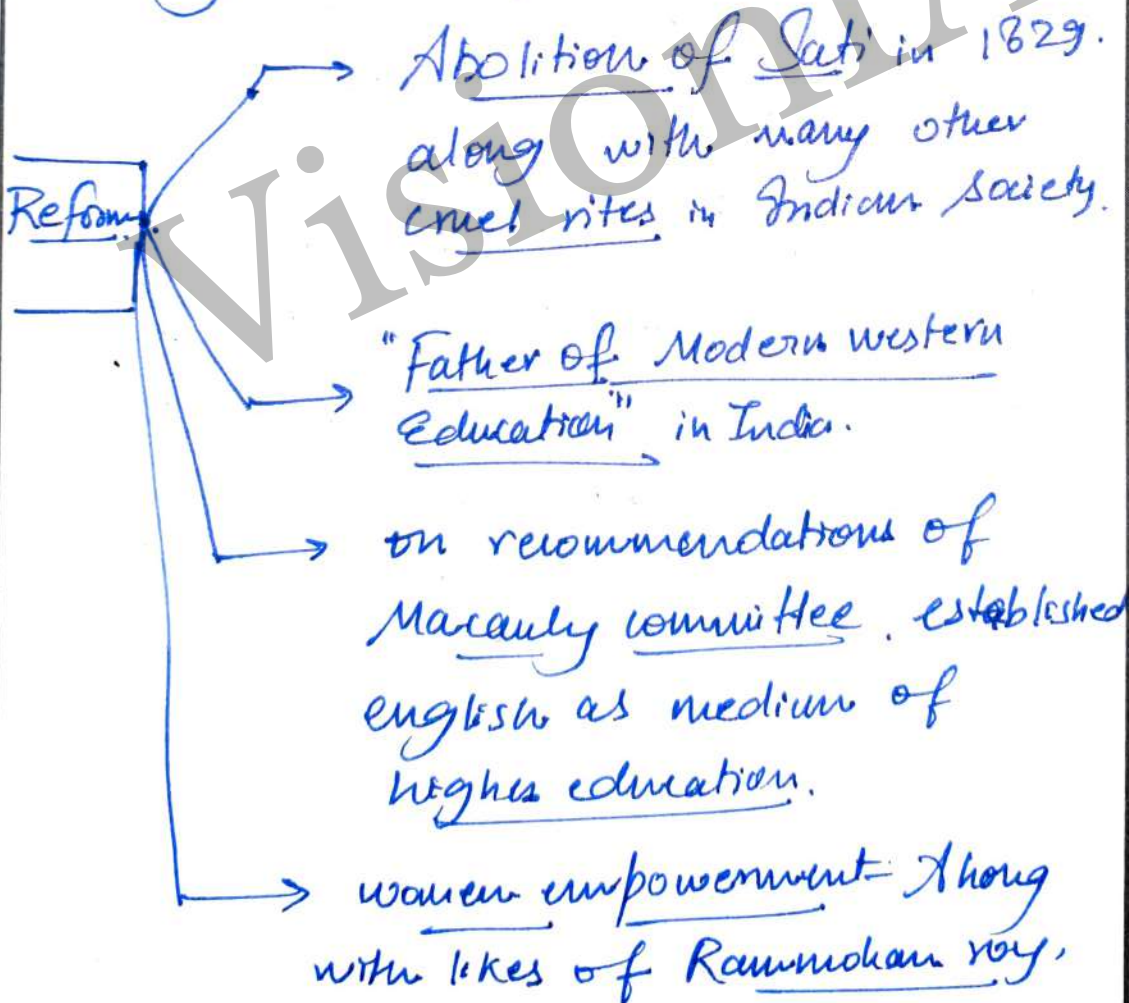 Abolition of Sati in 1829.
along with many other
cruel rites in Indian Society.
Reform
"Father of Modern western
Education" in India.
on recommendations of
Macauly committee. established
english as medium of
higher education.
women empowerment- Along
with likes of Rammohan roy,
Vision